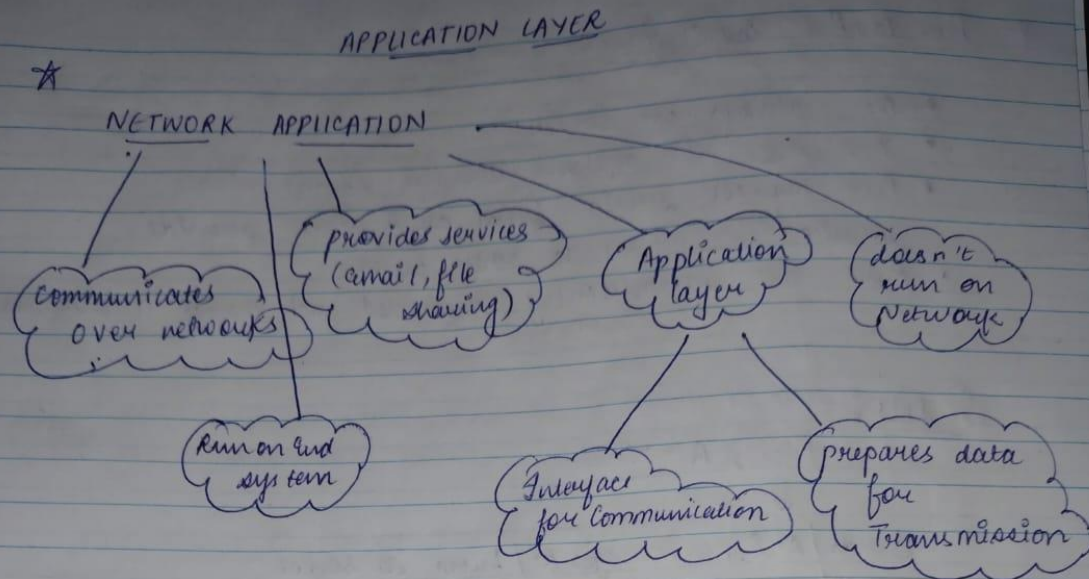 APPLICATION LAYER
NETWORK APPLICATION
Communicates
over networks
provides services
(email, file
sharing)
Application
layer
doesn't
run on
Network
Run on End
system
Interface
for Communication
prepares data
for
Transmission